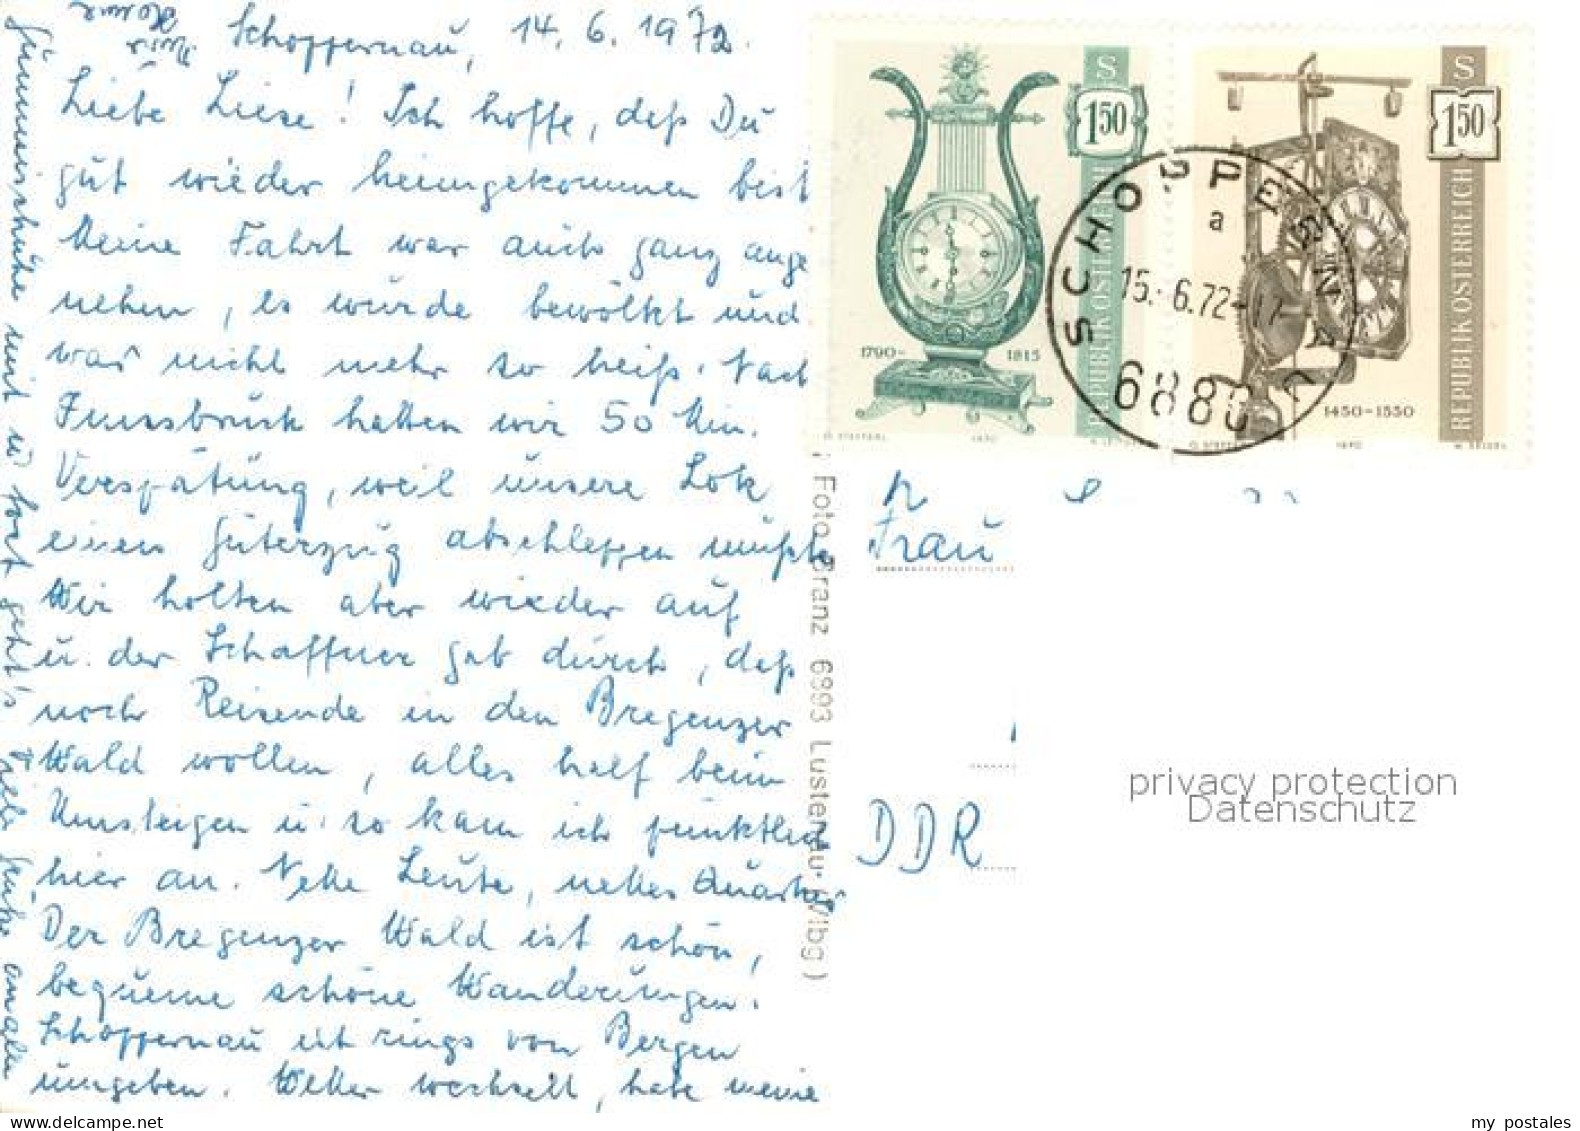 Schoppernau, 14. 6. 1972.
Liebe Liese! Ich hoffe, daß Du
gut wieder heimgekommen bist
Meine Fahrt war auch ganz ange
nehm, es wurde bewölkt und
war nicht mehr so heiß. Nach
Innsbruck hatten wir 50 Min.
Verspätung, weil unsere Lok
einen Güterzug abschleppen mußte
Wir holten aber wieder auf
u. der Schaffner gab durch, daß
noch Reisende in den Bregenzer
Wald wollen, alles half beim
Umsteigen u. so kam ich pünktlich
hier an. Nette Leute, nettes Quartier
Der Bregenzer Wald ist schön,
bequeme schöne Wanderungen.
Schoppernau ist rings von Bergen
umgeben. Wetter wechselt, habe meine
Gummischuhe mit u. dort geht's
S 1 50
REPUBLIK ÖSTERREICH
1790-1815
1970
S 1 50
REPUBLIK ÖSTERREICH
1450-1550
1970
SCHOPPERNAU
a
15.-6.72-17
6880
Foto Branz 6893 Lustenau (Vlbg)
Frau
DDR
privacy protection
Datenschutz
my postales